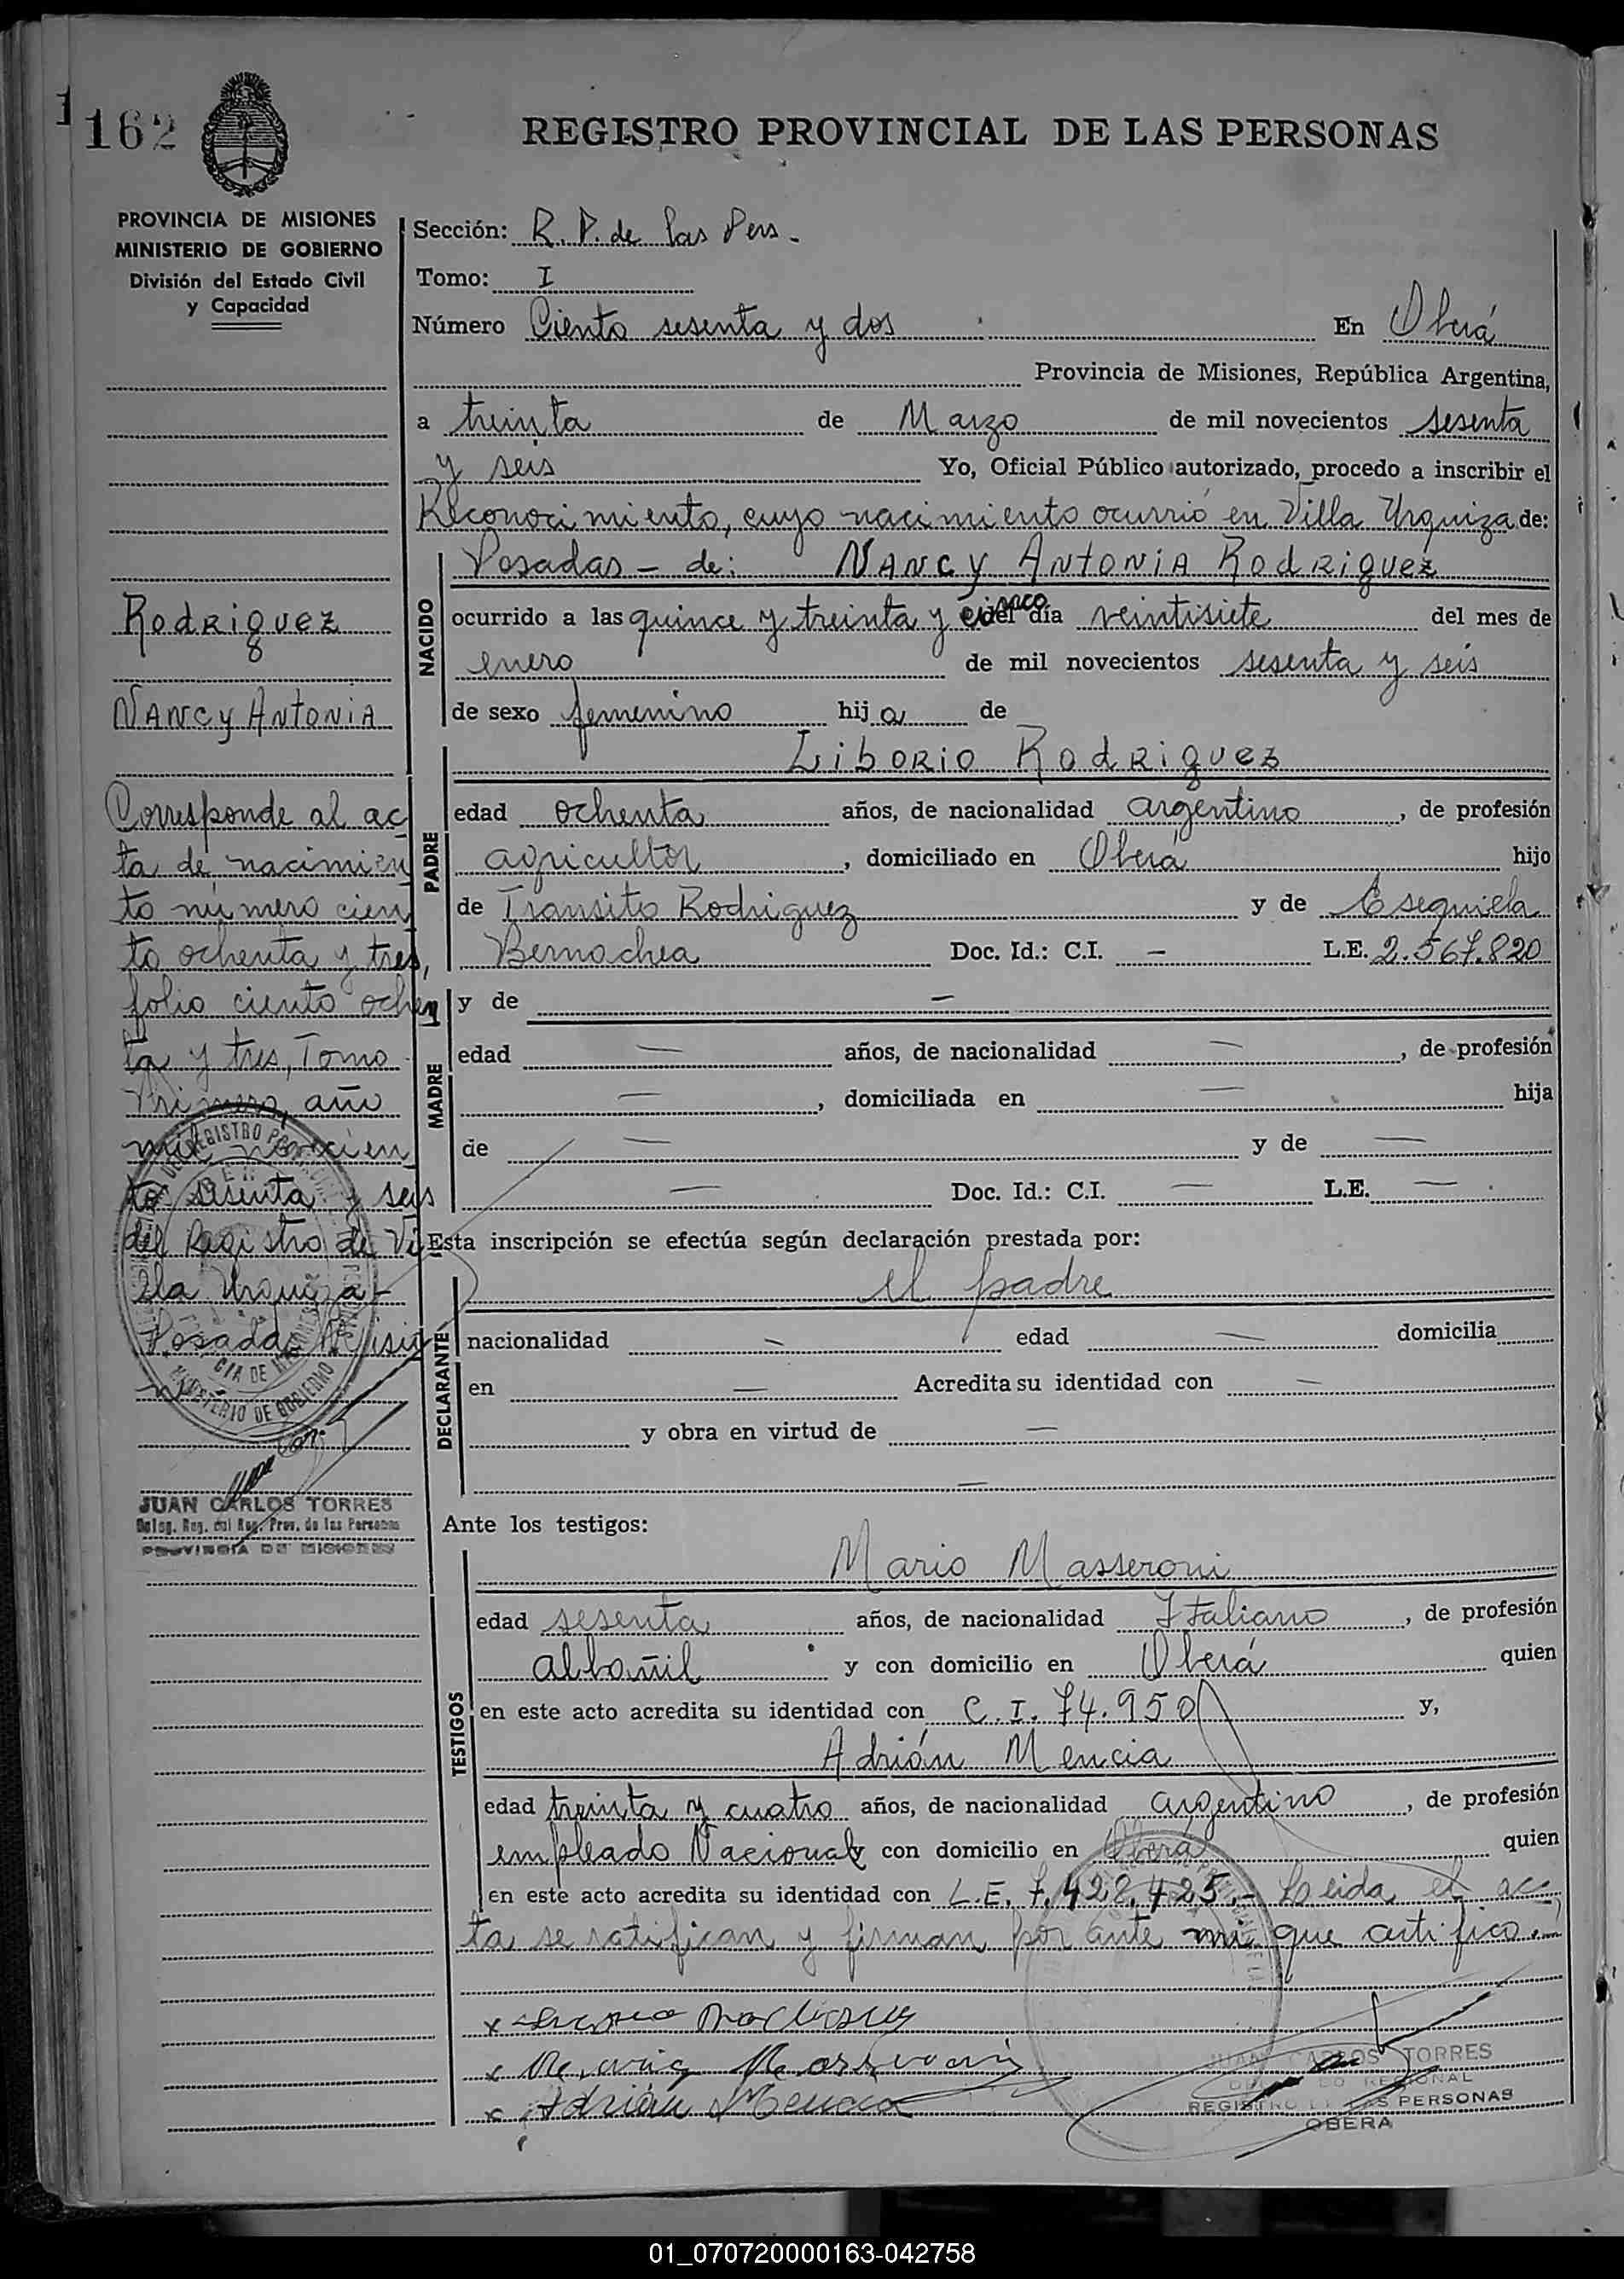 1
162
REGISTRO PROVINCIAL DE LAS PERSONAS
PROVINCIA DE MISIONES
MINISTERIO DE GOBIERNO
División del Estado Civil
y Capacidad
Sección: R. P. de las Pers.
Tomo: I
Número Ciento sesenta y dos En Oberá
Provincia de Misiones, República Argentina,
a treinta de Marzo de mil novecientos sesenta
y seis Yo, Oficial Público autorizado, procedo a inscribir el
Reconocimiento, cuyo nacimiento ocurrió en Villa Urquiza de:
NACIDO
Posadas - de: NANCY ANTONIA RODRIGUEZ
ocurrido a las quince y treinta y cinco del día veintisiete del mes de
enero de mil novecientos sesenta y seis
de sexo femenino hija de
PADRE
Liborio Rodriguez
edad ochenta años, de nacionalidad argentino, de profesión
agricultor, domiciliado en Oberá hijo
de Transito Rodriguez y de Esequiela
Bernachea Doc. Id.: C.I. — L.E. 2.567.820
MADRE
y de —
edad — años, de nacionalidad —, de profesión
—, domiciliada en — hija
de — y de —
— Doc. Id.: C.I. — L.E. —
Esta inscripción se efectúa según declaración prestada por:
DECLARANTE
el padre
nacionalidad — edad — domicilia
en — Acredita su identidad con —
y obra en virtud de —
—
Ante los testigos:
TESTIGOS
Mario Masseroni
edad sesenta años, de nacionalidad Italiano, de profesión
albañil y con domicilio en Oberá quien
en este acto acredita su identidad con C. I. 74.950 y,
Adrián Mencia
edad treinta y cuatro años, de nacionalidad argentino, de profesión
empleado Nacional y con domicilio en Oberá quien
en este acto acredita su identidad con L.E. 7.428.425.- Leida el ac
ta se ratifican y firman por ante mi que certifico.
x
x
x Adrián Mencia
JUAN CARLOS TORRES
REGIONAL
REGISTRO DE LAS PERSONAS
OBERA
Rodriguez
NANCY ANTONIA
Corresponde al ac
ta de nacimien
to número cien
to ochenta y tres,
folio ciento ochen
ta y tres, Tomo
Primero, año
mil novecien
to sesenta y seis
del Registro de Vi
lla Urquiza -
Posadas Misio
n
MINISTERIO DE GOBIERNO
JUAN CARLOS TORRES
Deleg. Reg. del Reg. Prov. de las Personas
PROVINCIA DE MISIONES
01_070720000163-042758